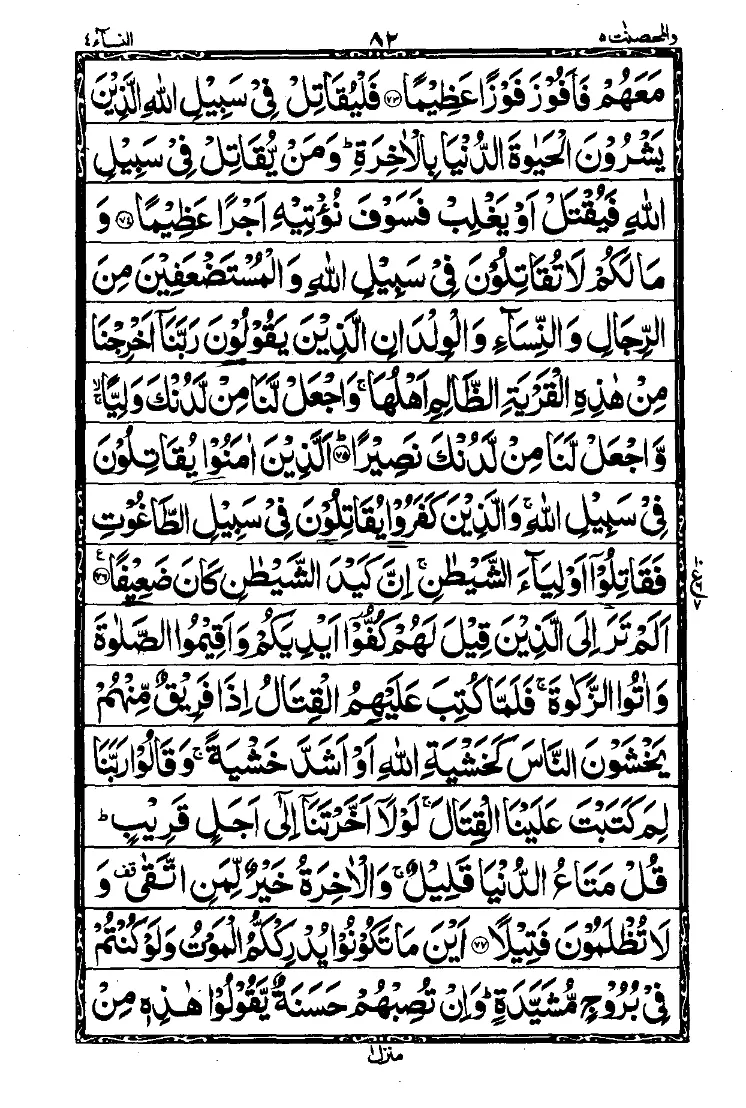 والمحصنت ۵ ۸۲ النسآء ٤
مَعَهُمْ فَاَفُوْزَ فَوْزًا عَظِيْمًا ﴿۷۳﴾ فَلْيُقَاتِلْ فِىْ سَبِيْلِ اللّٰهِ الَّذِيْنَ
يَشْرُوْنَ الْحَيٰوةَ الدُّنْيَا بِالْاٰخِرَةِ ؕ وَمَنْ يُّقَاتِلْ فِىْ سَبِيْلِ
اللّٰهِ فَيُقْتَلْ اَوْ يَغْلِبْ فَسَوْفَ نُؤْتِيْهِ اَجْرًا عَظِيْمًا ﴿۷٤﴾ وَ
مَا لَكُمْ لَا تُقَاتِلُوْنَ فِىْ سَبِيْلِ اللّٰهِ وَالْمُسْتَضْعَفِيْنَ مِنَ
الرِّجَالِ وَالنِّسَآءِ وَالْوِلْدَانِ الَّذِيْنَ يَقُوْلُوْنَ رَبَّنَاۤ اَخْرِجْنَا
مِنْ هٰذِهِ الْقَرْيَةِ الظَّالِمِ اَهْلُهَا ۚ وَاجْعَلْ لَّنَا مِنْ لَّدُنْكَ وَلِيًّا ۙۚ
وَّاجْعَلْ لَّنَا مِنْ لَّدُنْكَ نَصِيْرًا ؕ﴿۷۵﴾ اَلَّذِيْنَ اٰمَنُوْا يُقَاتِلُوْنَ
فِىْ سَبِيْلِ اللّٰهِ ۚ وَالَّذِيْنَ كَفَرُوْا يُقَاتِلُوْنَ فِىْ سَبِيْلِ الطَّاغُوْتِ
فَقَاتِلُوْۤا اَوْلِيَآءَ الشَّيْطٰنِ ۚ اِنَّ كَيْدَ الشَّيْطٰنِ كَانَ ضَعِيْفًا ﴿۷٦﴾ ع
اَلَمْ تَرَ اِلَى الَّذِيْنَ قِيْلَ لَهُمْ كُفُّوْۤا اَيْدِيَكُمْ وَاَقِيْمُوا الصَّلٰوةَ
وَاٰتُوا الزَّكٰوةَ ۚ فَلَمَّا كُتِبَ عَلَيْهِمُ الْقِتَالُ اِذَا فَرِيْقٌ مِّنْهُمْ
يَخْشَوْنَ النَّاسَ كَخَشْيَةِ اللّٰهِ اَوْ اَشَدَّ خَشْيَةً ۚ وَقَالُوْا رَبَّنَا
لِمَ كَتَبْتَ عَلَيْنَا الْقِتَالَ ۚ لَوْلَاۤ اَخَّرْتَنَاۤ اِلٰٓى اَجَلٍ قَرِيْبٍ ؕ
قُلْ مَتَاعُ الدُّنْيَا قَلِيْلٌ ۚ وَالْاٰخِرَةُ خَيْرٌ لِّمَنِ اتَّقٰى قف وَ
لَا تُظْلَمُوْنَ فَتِيْلًا ﴿۷۷﴾ اَيْنَ مَا تَكُوْنُوْا يُدْرِكْكُّمُ الْمَوْتُ وَلَوْ كُنْتُمْ
فِىْ بُرُوْجٍ مُّشَيَّدَةٍ ؕ وَاِنْ تُصِبْهُمْ حَسَنَةٌ يَّقُوْلُوْا هٰذِهٖ مِنْ
منزل ۱